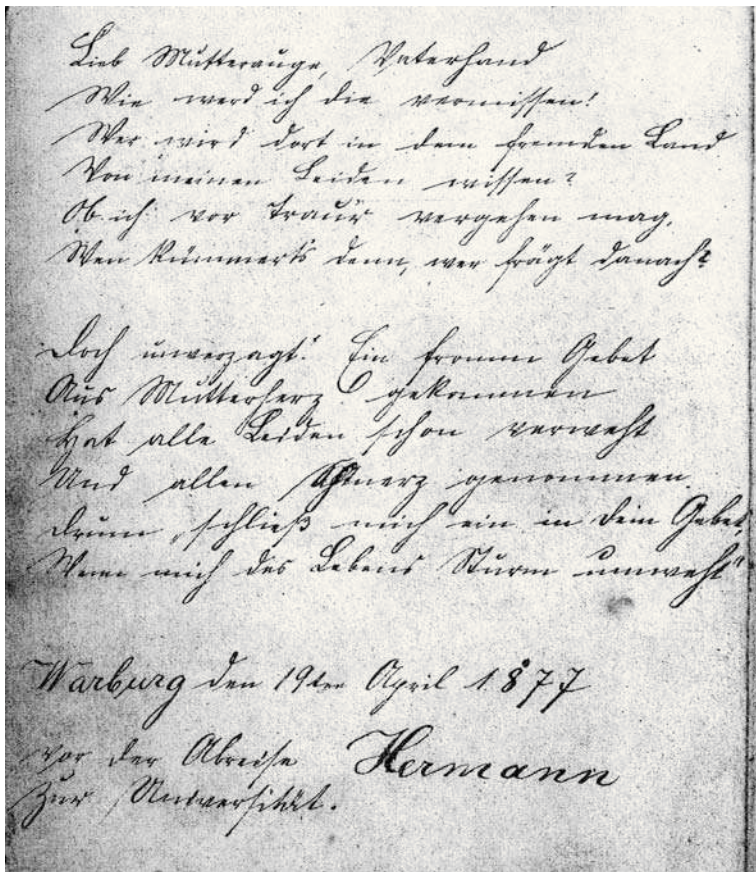 Lieb Mutterauge, Vaterhand
Wie werd ich die vermissen!
Wer wird dort in dem fremden Land
Von meinen Leiden wissen?
Ob ich vor Traur vergehen mag,
Wen kümmert's denn, wer frägt danach?
Doch unverzagt! Ein fromm Gebet
Aus Mutterherz gekommen
Hat alle Leiden schon verweht
Und allen Schmerz genommen.
Drum „schließ mich ein in dein Gebet,
Wenn mich des Lebens Sturm umweht“
Warburg den 19ten April 1877
vor der Abreise Hermann
zur Universität.